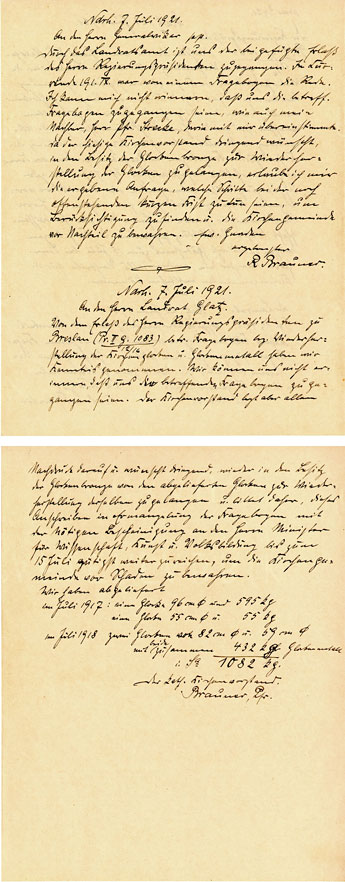 Nash. 7. Juli 1921.
An den Herrn Generalvikar pp.
Durch das Landratsamt ist uns der beigefügte Erlaß
des Herrn Regierungspräsidenten zugegangen. In
war von einem Fragebogen die Rede.
Ich kann mich nicht erinnern, daß uns die betreff.
Fragebogen zugegangen seien, wie auch mein
Nachbar, Herr Pfr. darin mit mir übereinstimmt.
Da der hiesige Kirchenvorstand dringend wünscht,
in den Besitz der Glockenbronze zur Wiederher-
stellung der Glocken zu gelangen, erlaube ich mir
die ergebene Anfrage, welche Schritte bei der noch
offenstehenden kurzen Frist zu tun seien, um
Berücksichtigung zu finden u. die Kirchengemeinde
vor Nachteil zu bewahren. Euer Gnaden
ergebenster
R. Brauner.
Nash. 7. Juli 1921.
An den Herrn Landrat Glatz.
Von dem Erlaß des Herrn Regierungspräsidenten zu
Breslau (Pr. I g. 1083) betr. Fragebogen bez. Wiederher-
stellung der Kirchenglocken u. Glockenmetall haben wir
Kenntnis genommen. Wir können uns nicht er-
innern, daß uns die betreffenden Fragebogen zuge-
gangen seien. Der Kirchenvorstand legt aber allen
Nachdruck darauf u. wünscht dringend, wieder in den Besitz
der Glockenbronze von den abgelieferten Glocken zur Wieder-
herstellung derselben zu gelangen u. bittet daher, dieses
Anschreiben in Ermangelung der Fragebogen mit
der nötigen Bescheinigung an den Herrn Minister
für Wissenschaft, Kunst u. Volksbildung bis zum
15 Juli gütigst weiterzureichen, um die Kirchenge-
meinde vor Schaden zu bewahren.
Wir haben abgeliefert
im Juli 1917: eine Glocke 96 cm Φ und 595 kg
eine Glocke 55 cm Φ u. 55 kg
im Juli 1918 zwei Glocken von 82 cm Φ u. 69 cm Φ
mit beide zusammen 432 kg Glockenmetall
i. Sa 1082 kg.
Der kath. Kirchenvorstand.
Brauner, Pfr.